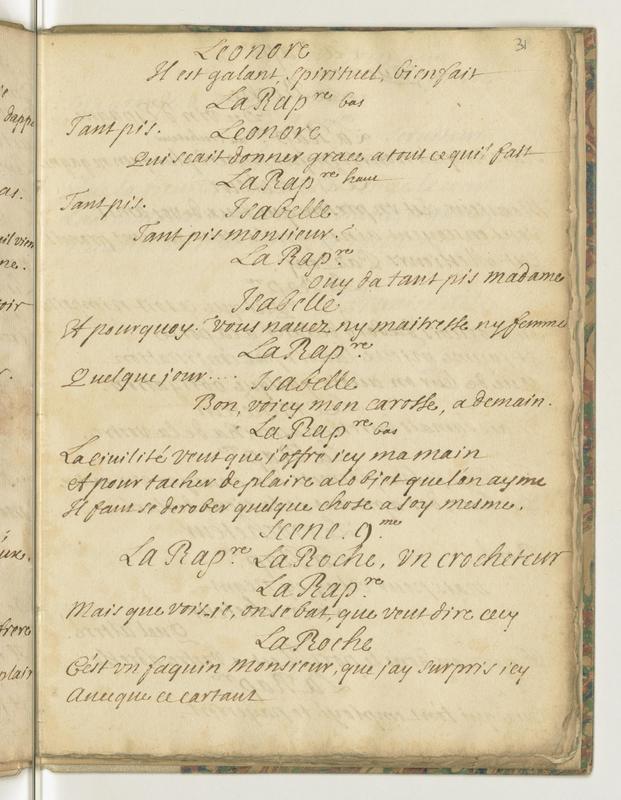 31
Leonore
Il est galant, spirituel, bienfait
La Rap.re bas
Tant pis. Leonore
Qui scait donner grace a tout ce qui fait
La Rap.re haut
Tant pis. Isabelle
Tant pis monsieur?
La Rap.re
Ouy da tant pis madame
Isabelle
Et pourquoy? Vous navez ny maitresse ny femme
La Rap.re
Quelque jour.... Isabelle
Bon, voicy mon carosse, a demain.
La Rap.re bas
La civilité veut que j'offre icy ma main
et pour tacher de plaire a lobjet que lon ayme
Il faut se derober quelque chose a soy mesme.
Scene. 9.me
La Rap.re La Roche, Vn crocheteur
La Rap.re
Mais que vois-je, on se bat, que veut dire cecy
La Roche
C'est vn faquin Monsieur, que j'ay surpris icy
Avecque ce cartaut